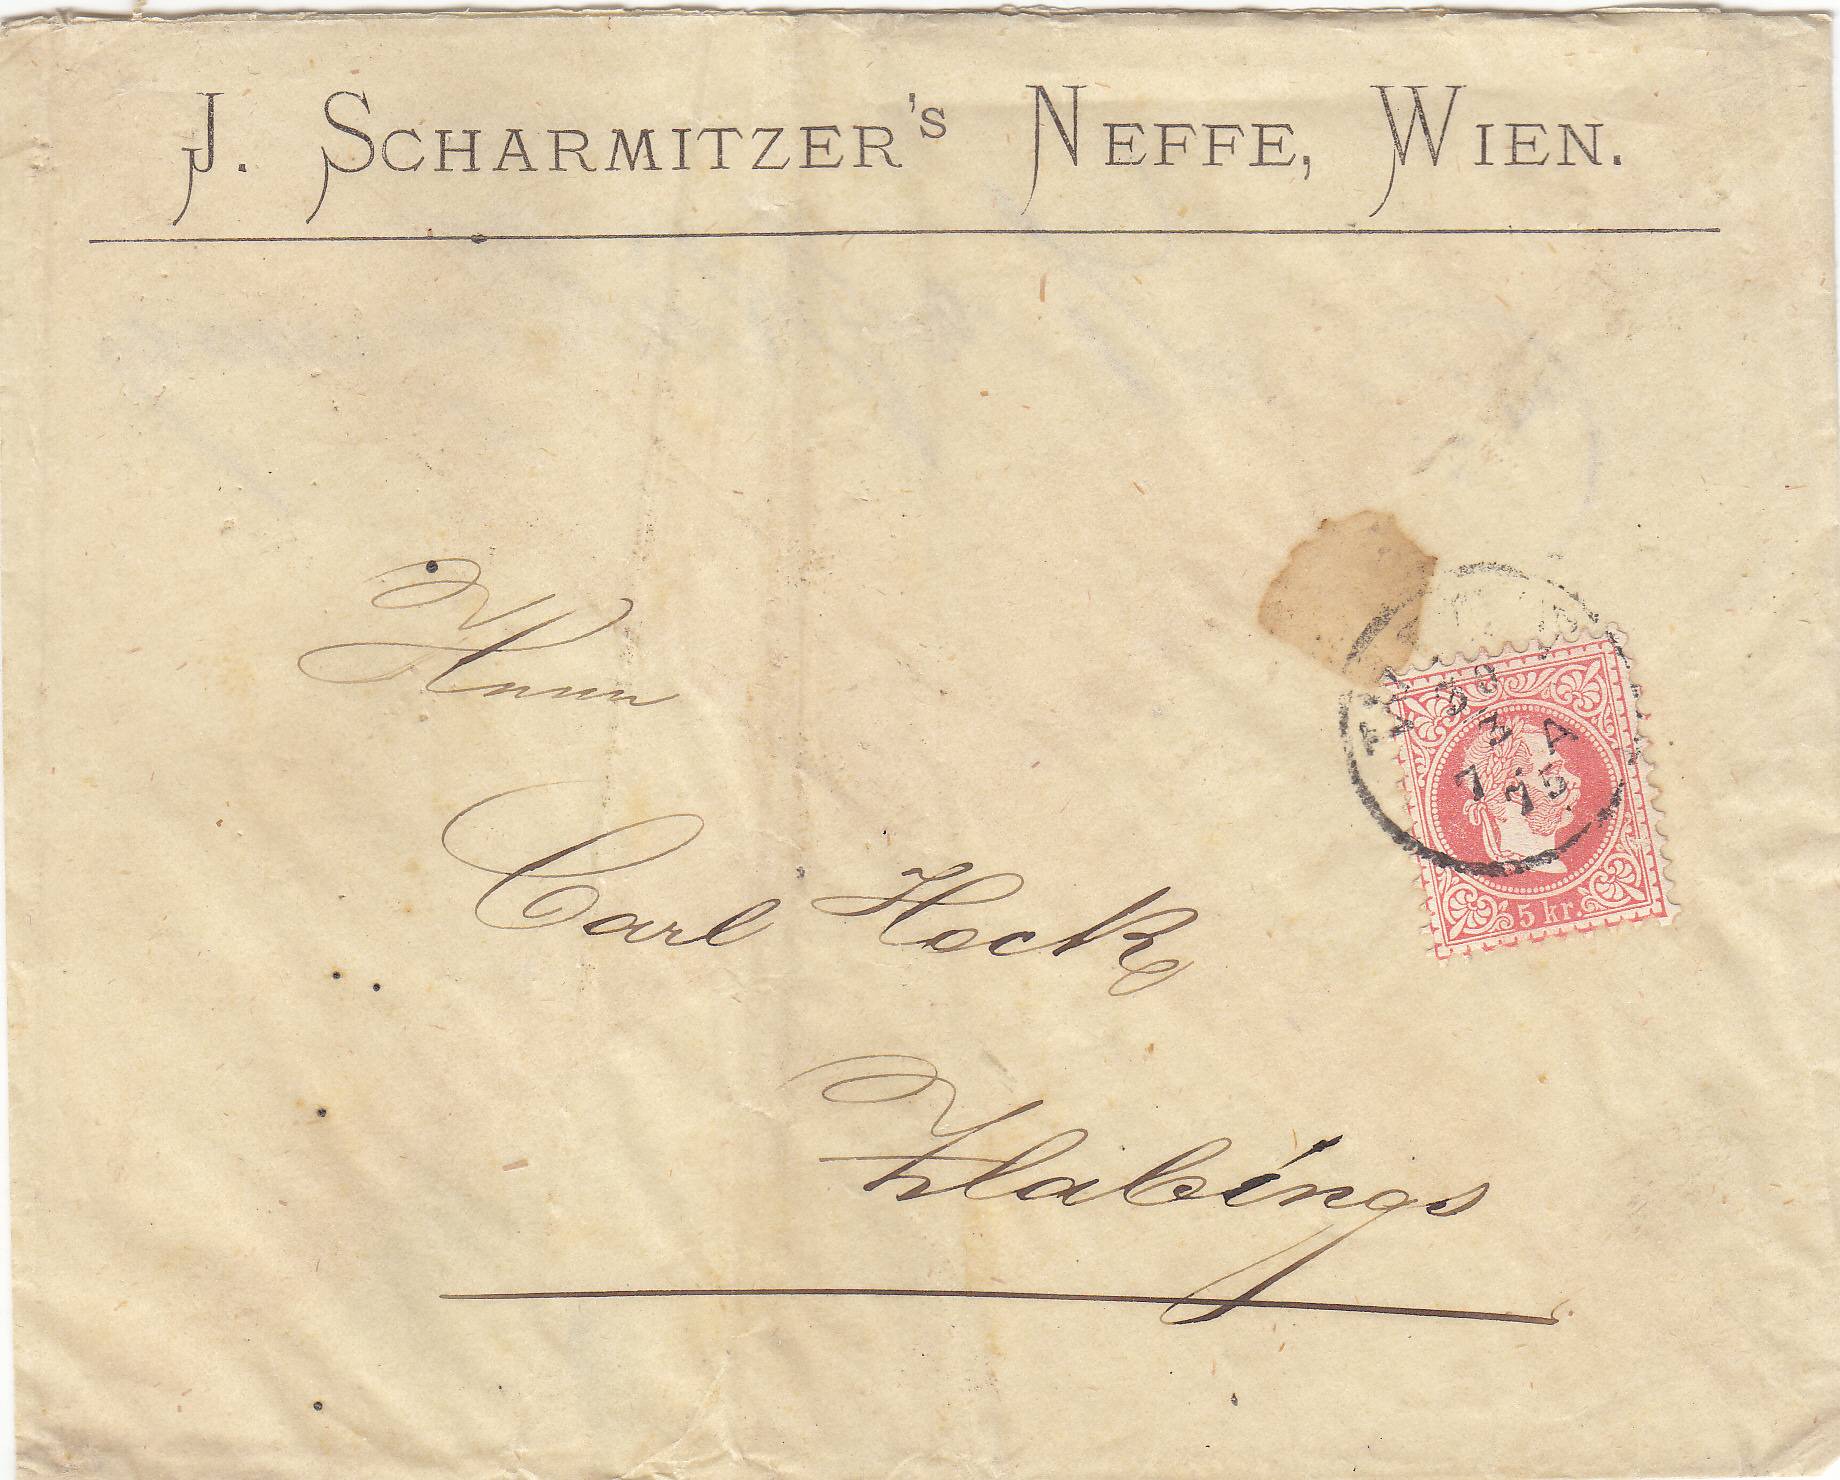 J. SCHARMITZER'S NEFFE, WIEN.
Herrn
Carl Hock
Zlabings
30
3 A
7 75
5 kr.